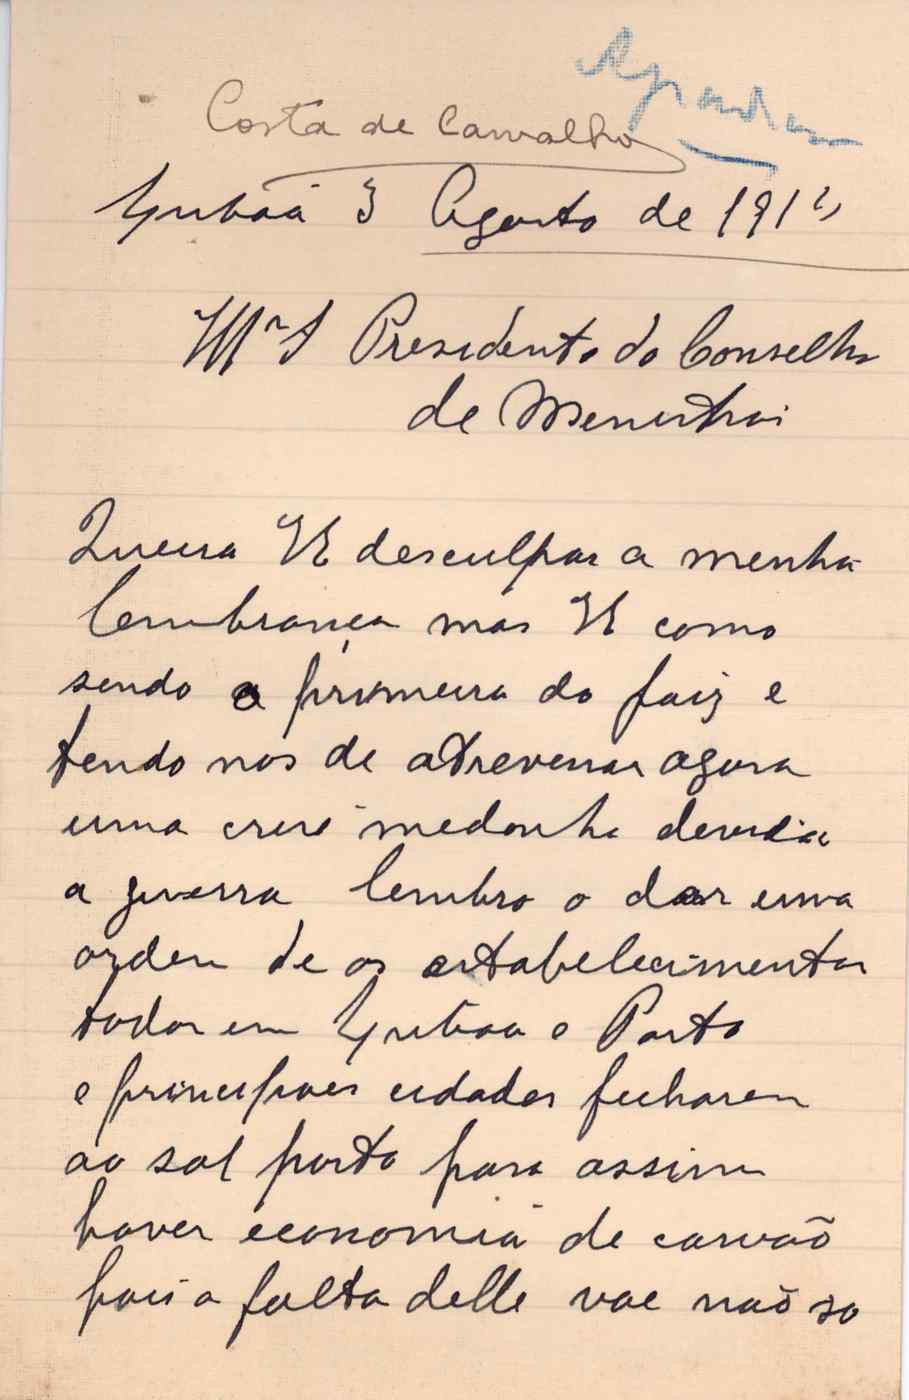 Costa de Carvalho
Lisboa 3 Agosto de 191
Presidente do Conselho
de Menistros
Queira VE desculpar a menha
lembrança mas VE como
sendo a primeira do paiz e
tendo nos de atrevessar agora
uma crise medonha devida
a guerra lembro o dar uma
ordem de os estabelecimentos
todos em Lisboa e Porto
e principaes cidades fecharem
ao sol posto para assim
haver economia de carvão
pois a falta delle vae não so